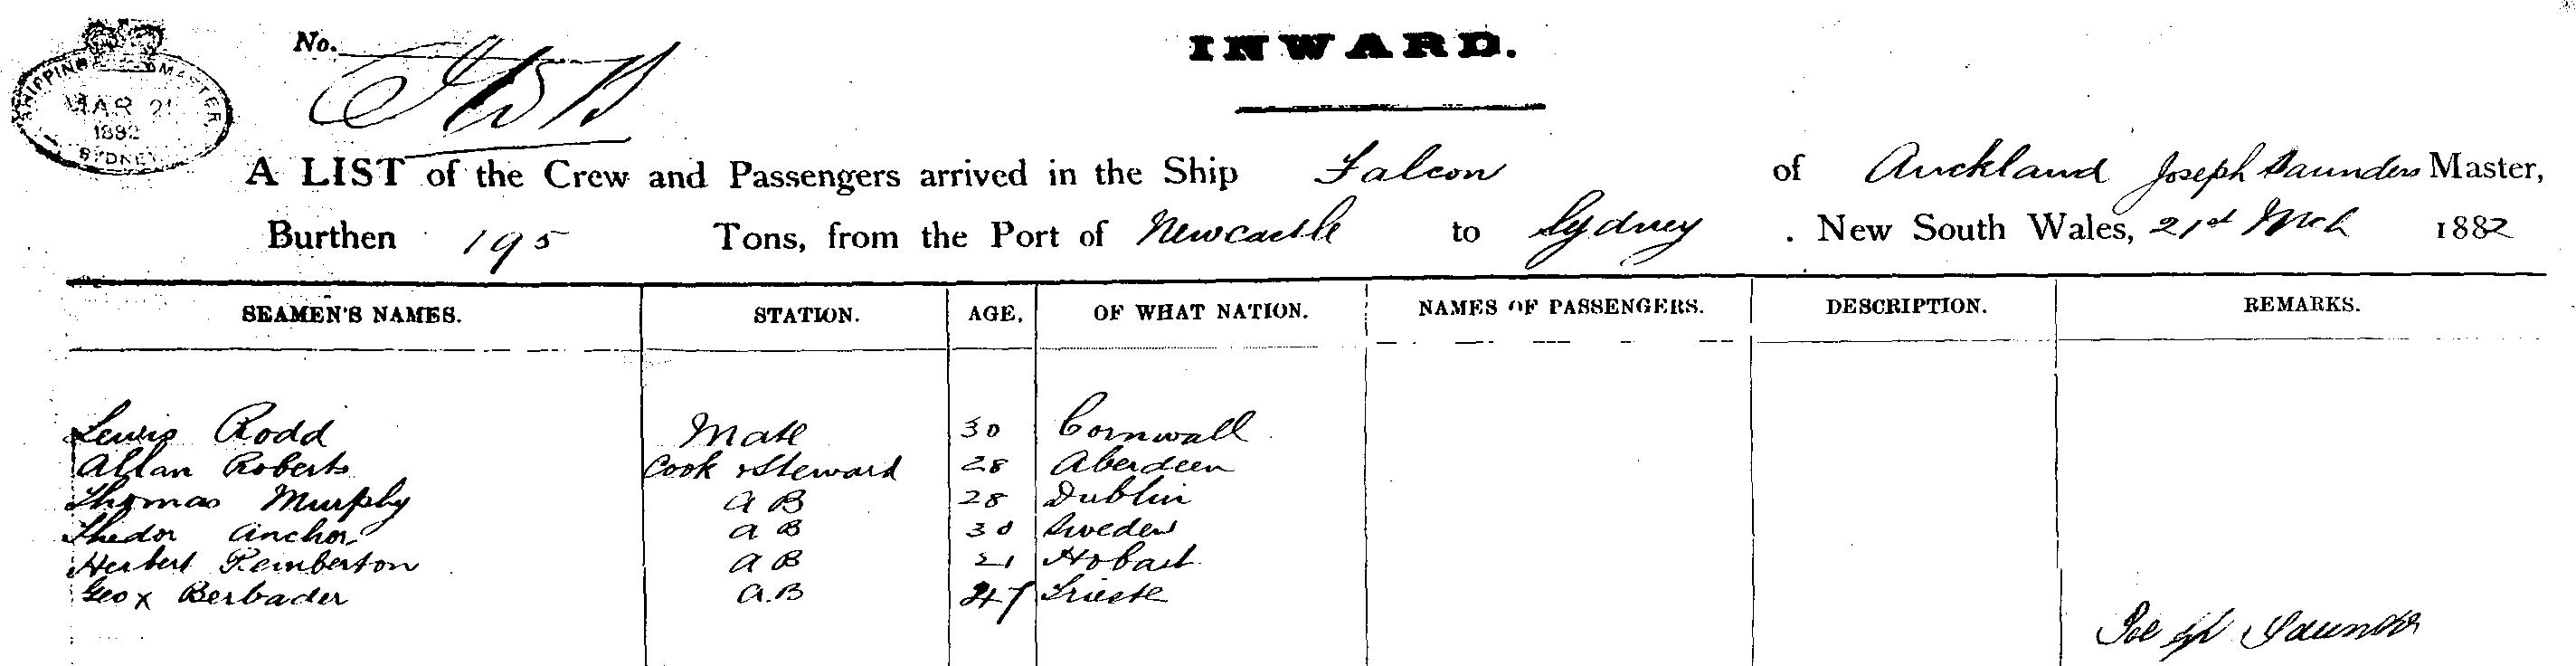 SHIPPING MASTER
MAR 21
1882
SYDNEY
No.
INWARD.
A LIST of the Crew and Passengers arrived in the Ship Falcon of Auckland Joseph Saunders Master,
Burthen 195 Tons, from the Port of Newcastle to Sydney . New South Wales, 21st Mch 1882
SEAMEN'S NAMES. STATION. AGE. OF WHAT NATION. NAMES OF PASSENGERS. DESCRIPTION. REMARKS.
Lewis Rodd Mate 30 Cornwall
Allan Roberts Cook & Steward 28 Aberdeen
Thomas Murphy A B 28 Dublin
Thedor Anchor A B 30 Sweden
Herbert Pemberton A B 21 Hobart
Geo x Berbader A.B 47 Trieste
Joseph Saunders